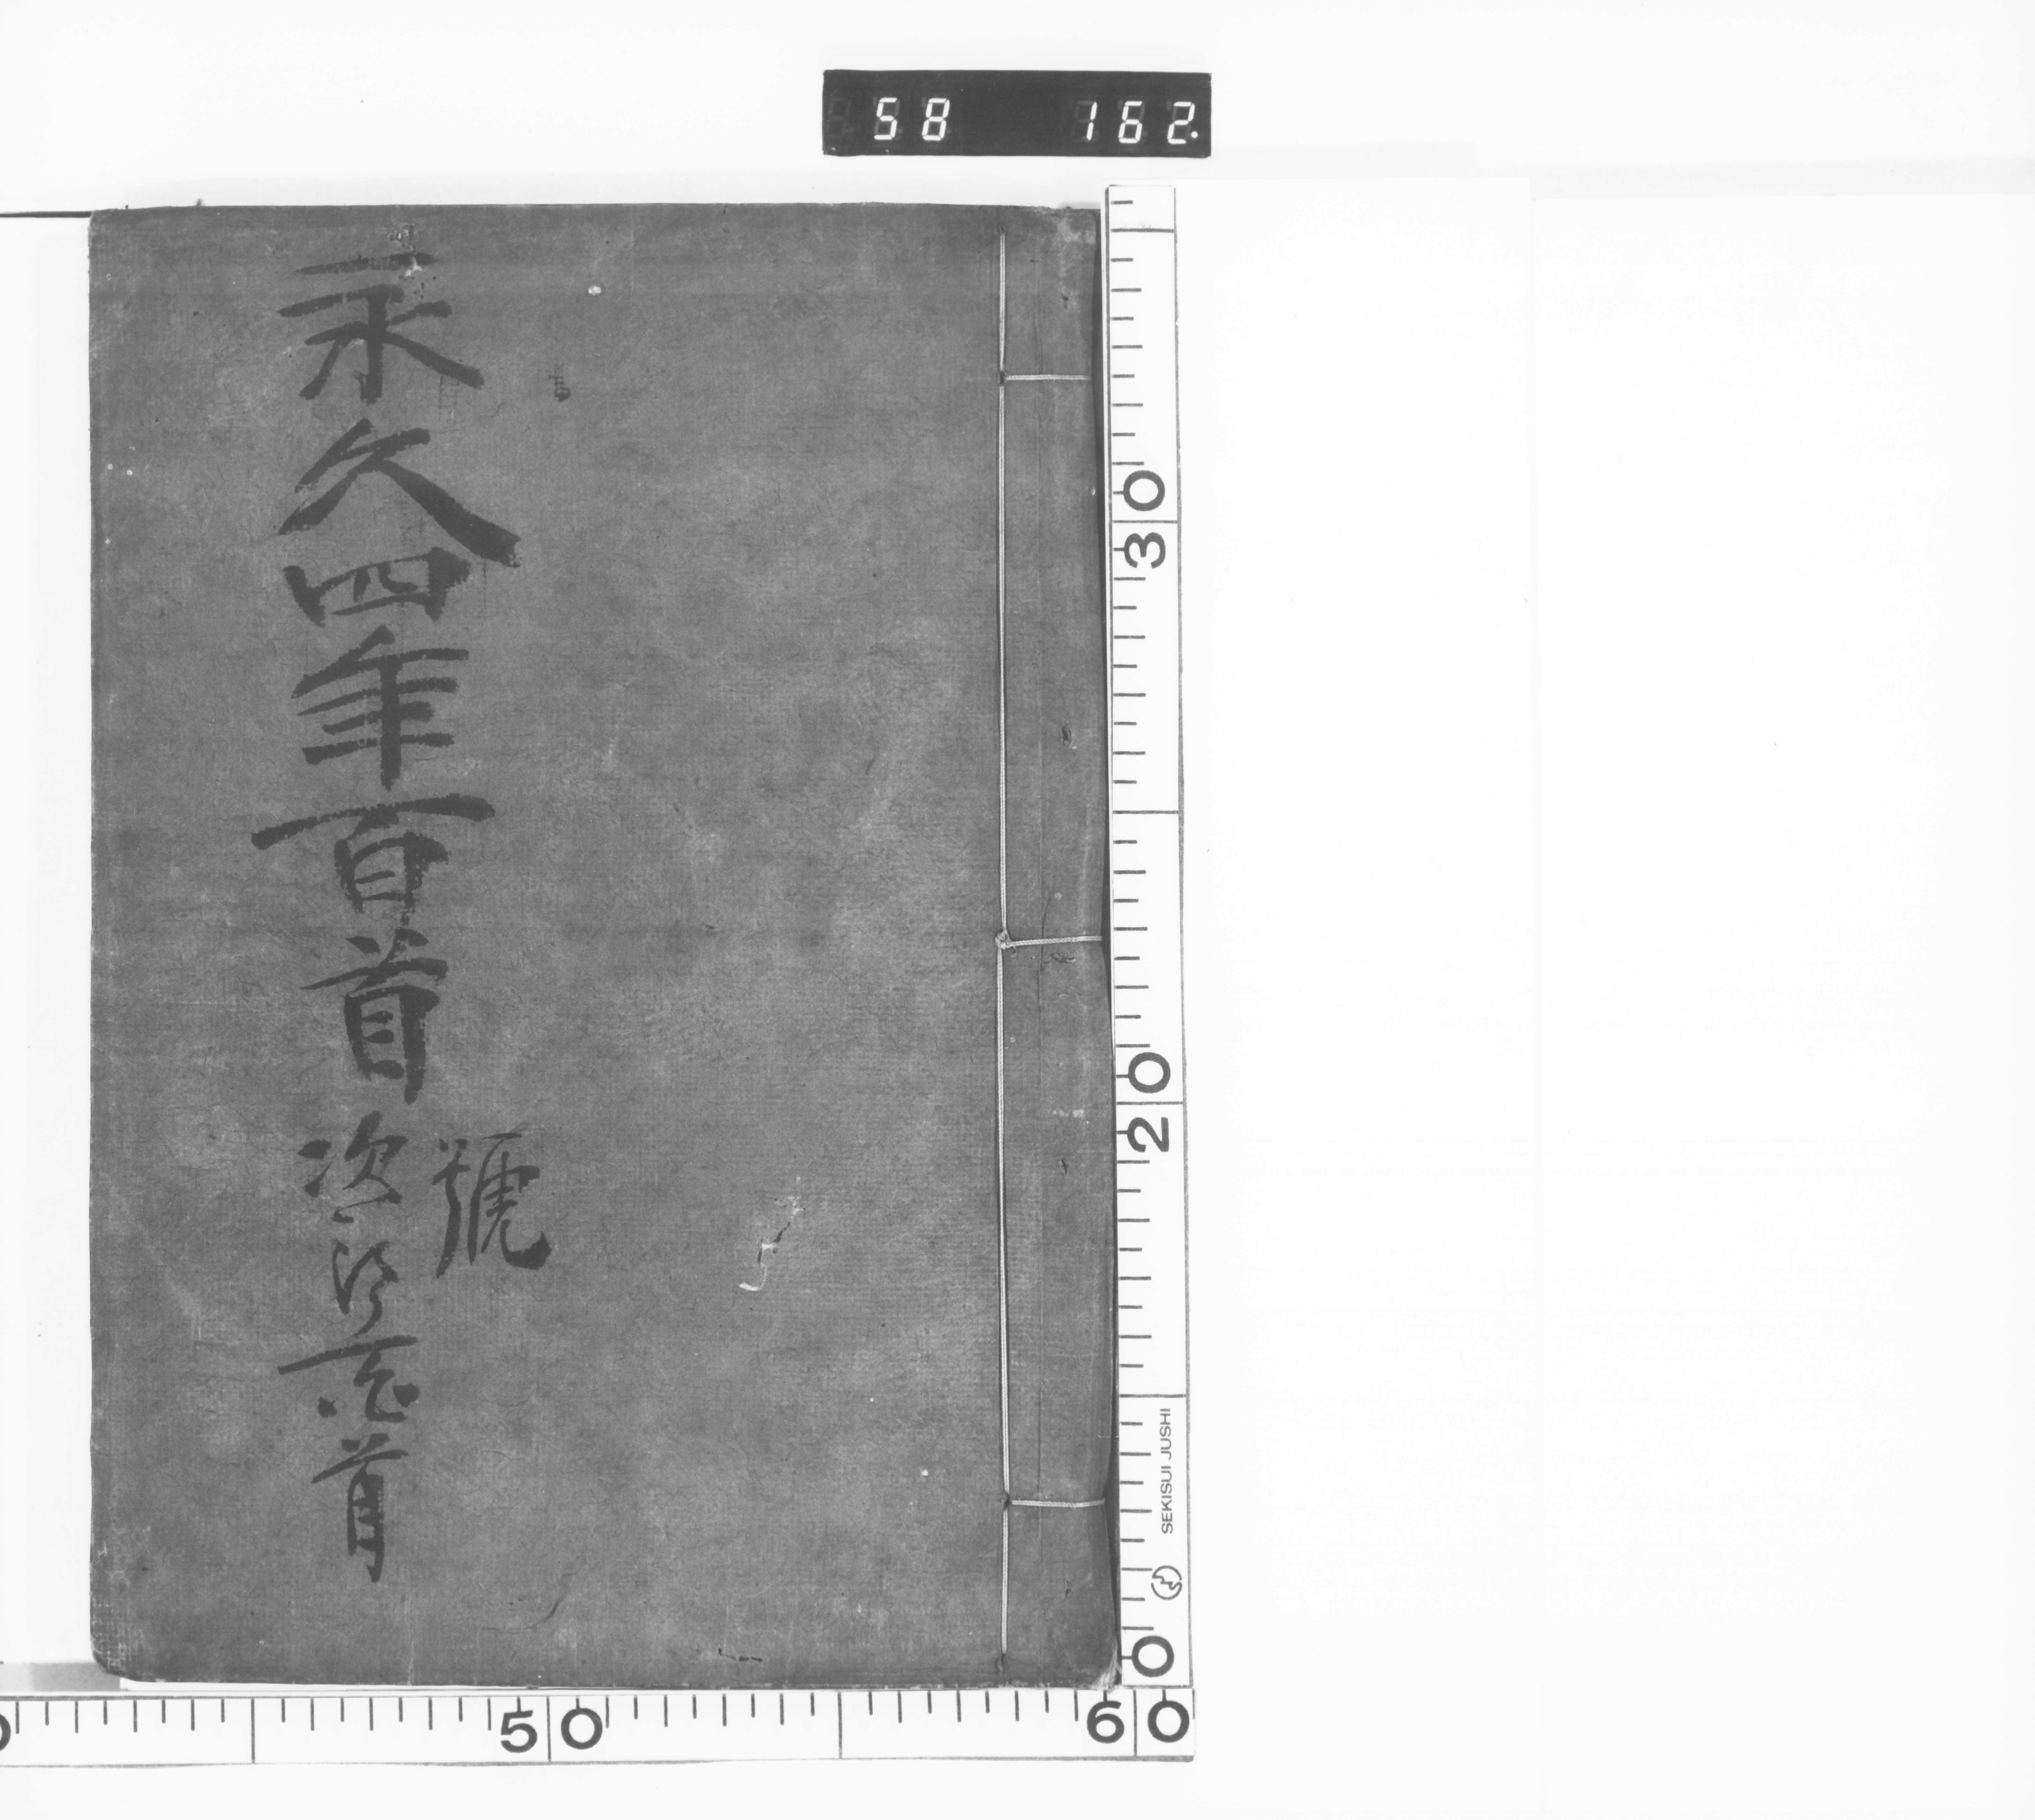 58 162.
永久四年百首
號
次郎百首
30
20
SEKISUI JUSHI
0
50
60